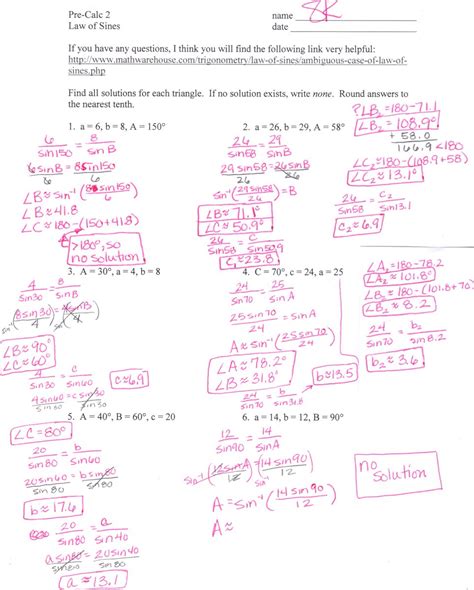 Pre-Calc 2
name SK
Law of Sines
date
If you have any questions, I think you will find the following link very helpful:
http://www.mathwarehouse.com/trigonometry/law-of-sines/ambiguous-case-of-law-of-
sines.php
Find all solutions for each triangle. If no solution exists, write none. Round answers to
the nearest tenth.
1. a = 6, b = 8, A = 150°
6/sin150 = 8/sin B
6 sin B/6 = 8 sin150/6
∠B ≈ sin⁻¹(8 sin150/6)
∠B ≈ 41.8
∠C ≈ 180-(150+41.8)
>180°, so
no solution
2. a = 26, b = 29, A = 58°
26/sin58 = 29/sin B
29 sin58 = 26 sin B
sin⁻¹(29 sin58/26) = B
∠B ≈ 71.1°
∠C ≈ 50.9°
26/sin58 = c/sin50.9
c₁ ≈ 23.8
∠B₂ = 180-71.1
∠B₂ = 108.9°
+ 58.0
166.9 < 180
∠C₂ = 180-(108.9+58)
∠C₂ ≈ 13.1°
26/sin58 = c₂/sin13.1
c₂ ≈ 6.9
3. A = 30°, a = 4, b = 8
4/sin30 = 8/sin B
8 sin30/4 = 4 sin B/4
∠B ≈ 90°
∠C ≈ 60°
4/sin30 = c/sin60
c ≈ 6.9
4 sin60/sin30 = c sin30/sin30
4. C = 70°, c = 24, a = 25
24/sin70 = 25/sin A
25 sin70/24 = sin A
A ≈ sin⁻¹(25 sin70/24)
∠A ≈ 78.2°
∠B ≈ 31.8°
24/sin70 = b/sin31.8
b ≈ 13.5
∠A₂ = 180-78.2
∠A₂ ≈ 101.8°
∠B₂ = 180-(101.8+70)
∠B₂ ≈ 8.2
24/sin70 = b₂/sin8.2
b₂ ≈ 3.6
5. A = 40°, B = 60°, c = 20
∠C = 80°
20/sin80 = b/sin60
20 sin60/sin80 = b sin80/sin80
b ≈ 17.6
20/sin80 = a/sin40
a sin80/sin80 = 20 sin40/sin80
a ≈ 13.1
6. a = 14, b = 12, B = 90°
12/sin90 = 14/sin A
sin⁻¹(12 sin A/12) = (14 sin90/12)
A = sin⁻¹(14 sin90/12)
A ≈
no
solution